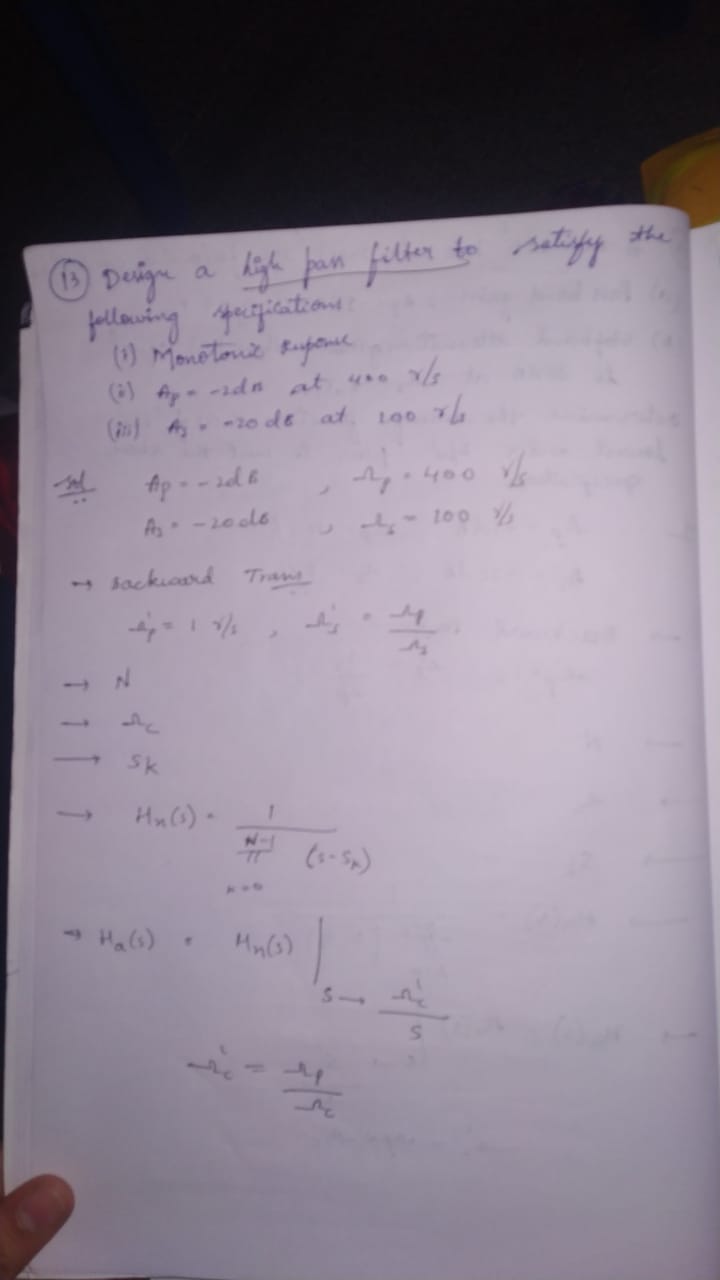 (13) Design a high pass filter to satisfy the
following specifications:
(i) Monotonic response
(ii) Ap = -2dB at 400 r/s
(iii) As = -20 dB at 100 r/s
Sol Ap = -2dB , Ωp = 400 r/s
As = -20dB , Ωs = 100 r/s
→ Backward Trans
Ωp' = 1 r/s , Ωs' = Ωp / Ωs
→ N
→ Ωc
→ Sk
→ Hn(s) = 1 / N-1 Π k=0 (s-sk)
→ Ha(s) = Hn(s) | s → Ωc' / s
Ωc' = Ωp / Ωc